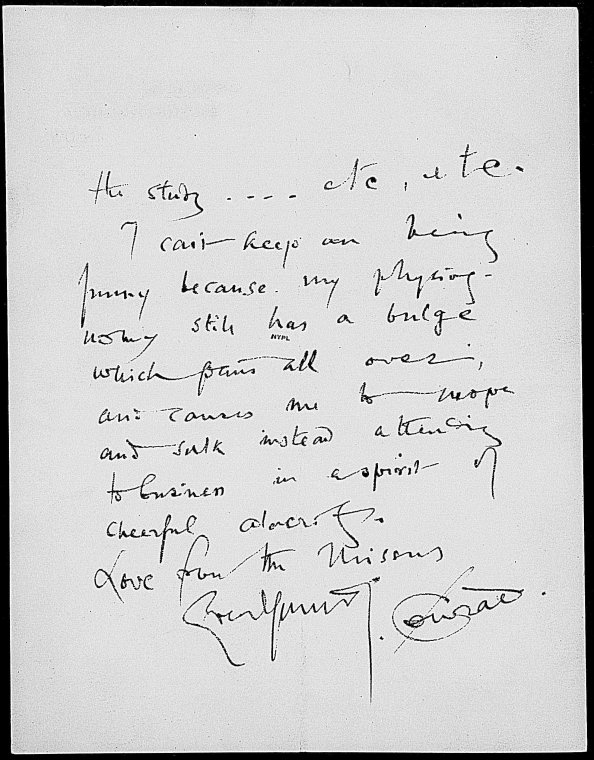 the study .... etc, etc.
I can't keep on being
funny because my physiog-
nomy still has a bulge
NYPL
which pains all over,
and causes me to mope
and sulk instead attending
to business in a spirit of
cheerful alacrity.
Love from the
Conrad.